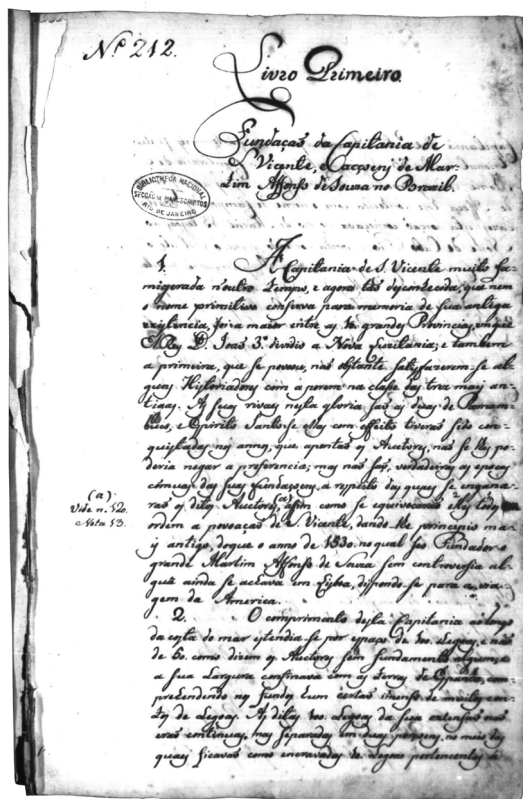 N.º 212.
Livro Primeiro.
Fundaçaõ da Capitania de
S. Vicente, e acçoens de Mar-
tim Affonso de Souza no Brazil.
BIBLIOTHECA NACIONAL
SECÇÃO DE MANUSCRIPTOS
RIO DE JANEIRO
1. A Capitania de S. Vicente muito fa-
migerada n'outro tempo, e agora taõ desconhecida, que nem
o nome primitivo conserva para memoria de sua antiga
existencia, foi a maior entre as 10 grandes Provincias, em que
El Rey D. Joaõ 3.º dividio a Nova Luzitania; e tambem
a primeira, que se povou, naõ obstante satisfazerem-se al-
guns Historiadores com a porem na classe das trez mais an-
tigas. As suas rivaes nesta gloria saõ as duas de Parnam-
buco, e Espirito Santo: se ellas com effeito tiveraõ sido con-
quistadas nos annos, que apontaõ os Auctores, naõ se lhes po-
deria negar a preferencia; mas naõ saõ verdadeiras as epocas
das suas fundaçoens, a respeito das quaes se engana-
raõ os ditos Auctores, (a) assim como se equivocaraõ elles todos
a povoaçaõ de S. Vicente, dando-lhe principio ma-
is antigo, do que o anno de 1530. no qual seo Fundador o
grande Martim Affonso de Souza sem controversia al-
guã ainda se achava em Lisboa, dispondo-se para a via-
gem da America.
(a)
Vide n. 120.
Nota 13.
2. O comprimento desta Capitania ao longo
da costa do mar estendia-se por espaço de 100. Legoas, e naõ
de 50. como dizem os Auctores sem fundamento algum; e
a sua Largura confinava com as terras de Espanha, com-
prehendendo nos fundos hum certaõ imenso de muitos cen-
tos de Legoas. As ditas 100 Legoas da sua extensaõ naõ
eraõ continuas, mas separadas em duas porsoens, no meio das
quaes ficavaõ como encravadas 10 Legoas pertencentes á